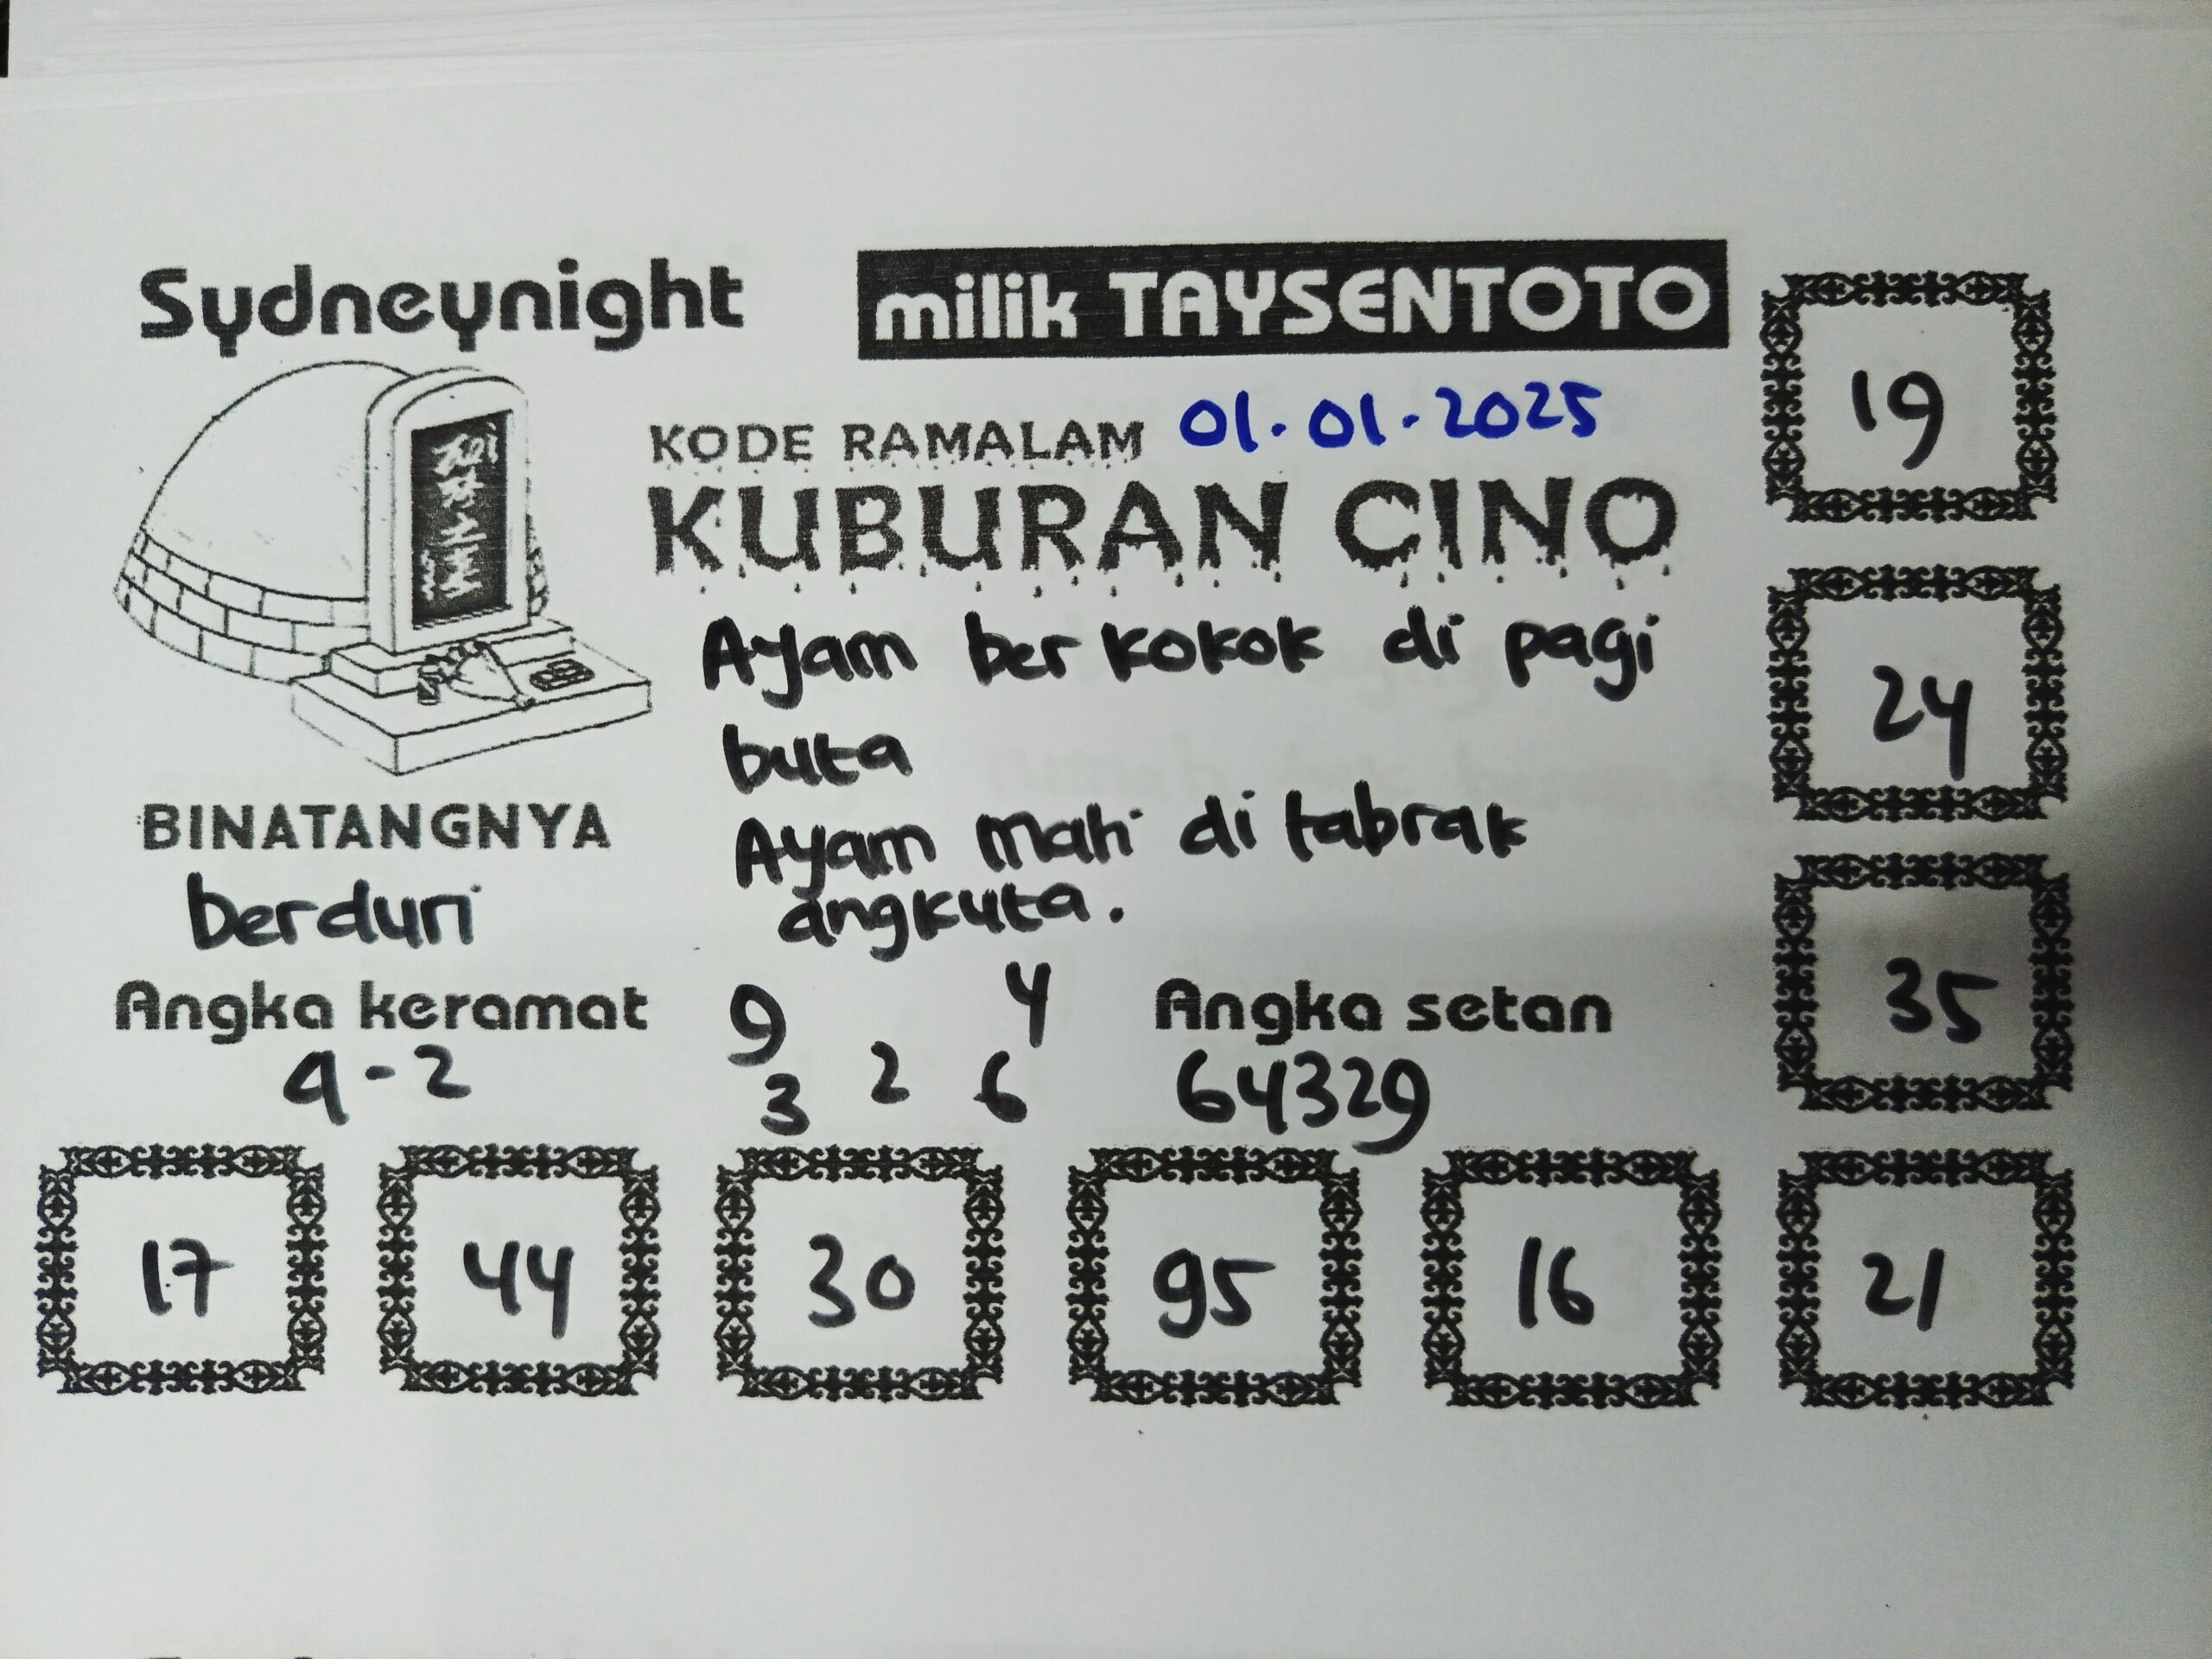 Sydneynight
milik TAYSENTOTO
KODE RAMALAM 01.01.2025
KUBURAN CINO
Ayam berkokok di pagi
buta
Ayam mati di tabrak
angkuta.
BINATANGNYA
berduri
Angka keramat
9-2
9 4
3 2 6
Angka setan
64329
19
24
35
17 44 30 95 16 21